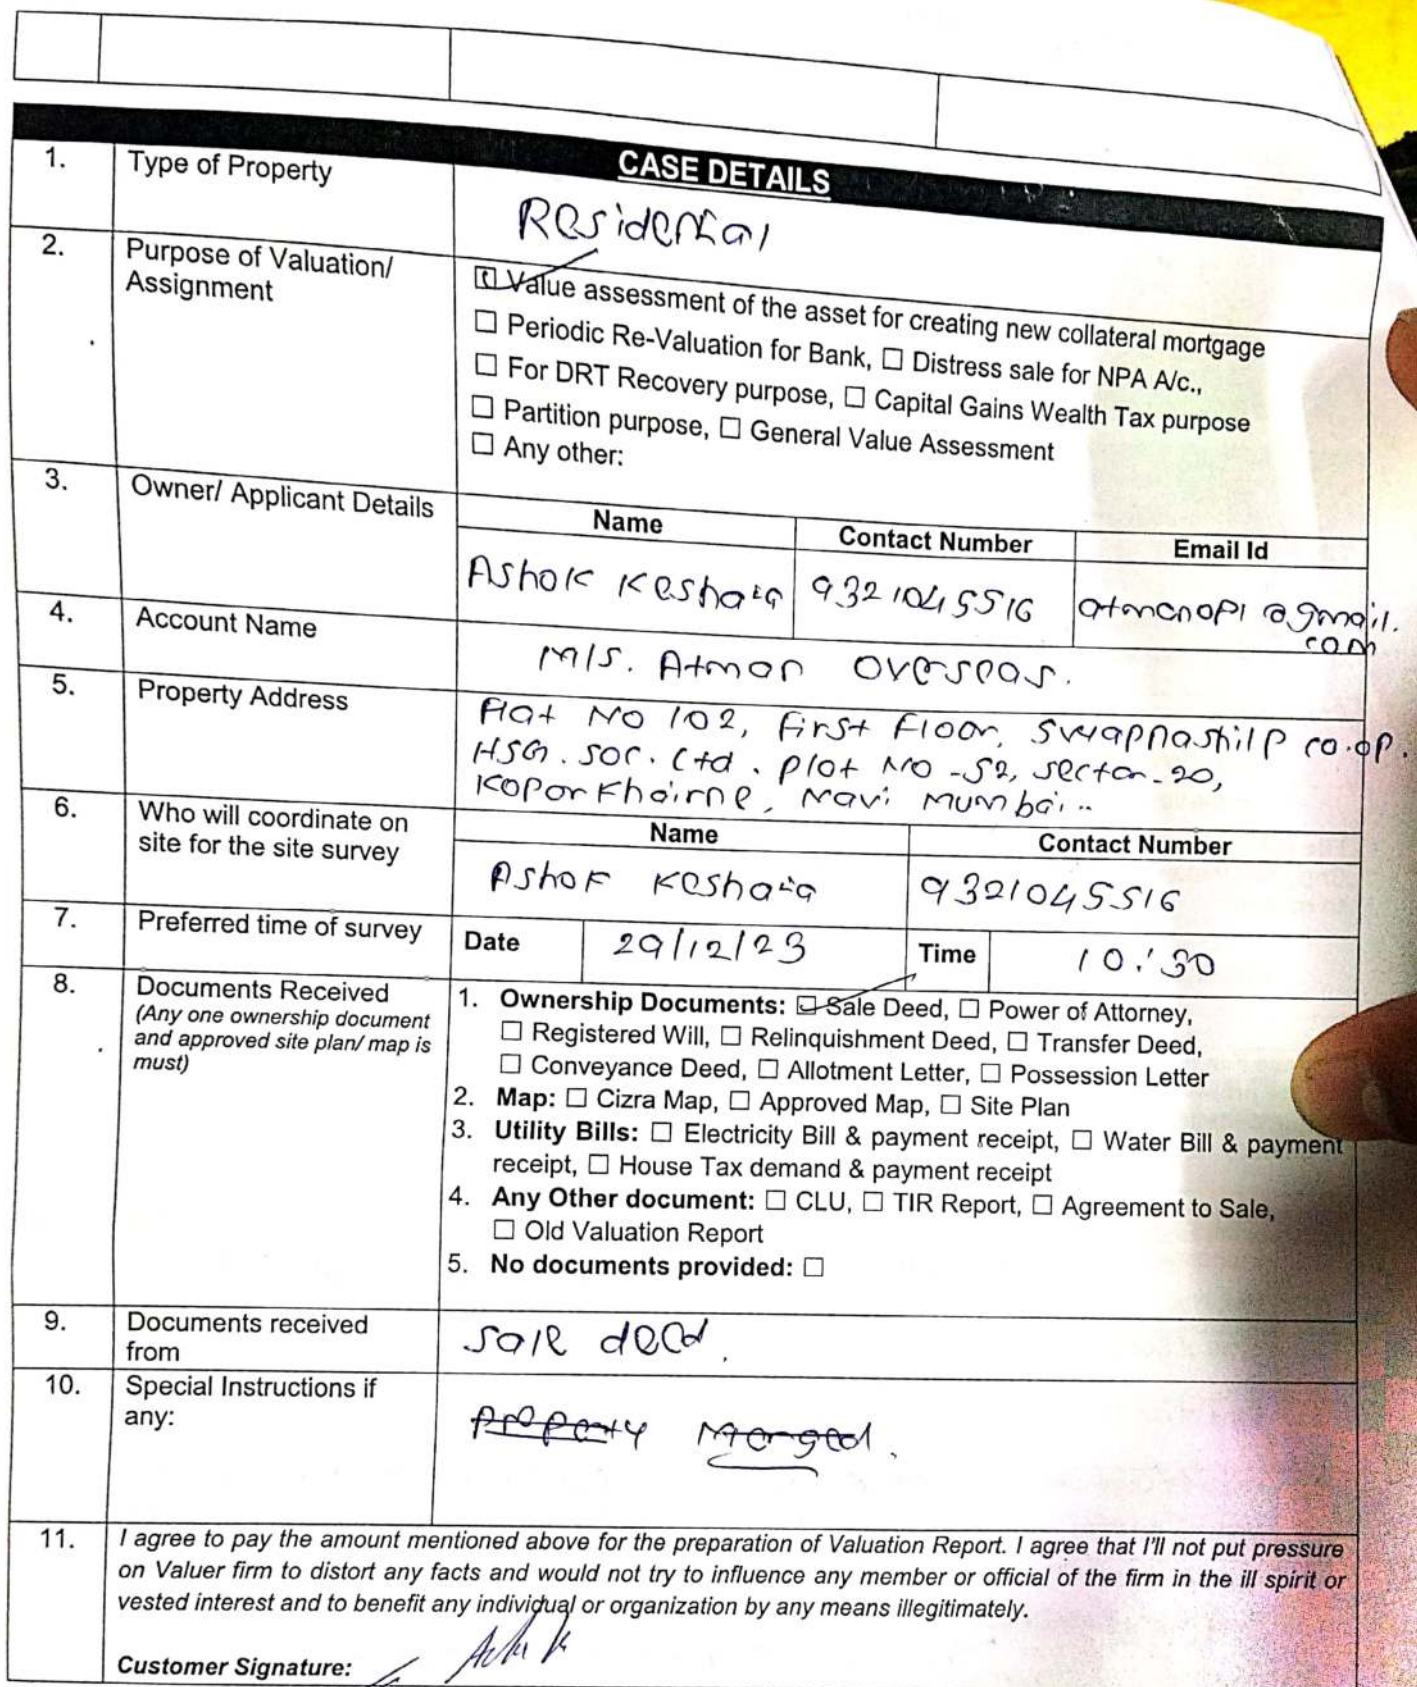 CASE DETAILS
1. Type of Property
Residential
2. Purpose of Valuation/ Assignment
☑ Value assessment of the asset for creating new collateral mortgage
☐ Periodic Re-Valuation for Bank, ☐ Distress sale for NPA A/c.,
☐ For DRT Recovery purpose, ☐ Capital Gains Wealth Tax purpose
☐ Partition purpose, ☐ General Value Assessment
☐ Any other:
3. Owner/ Applicant Details
Name Contact Number Email Id
Ashok 9321045516 @gmail.com
4. Account Name
M/s. Atman Overseas.
5. Property Address
Flat No 102, First Floor, Swapnashilp co.op.
HSG. Soc. Ltd. Plot No -52, Sector-20,
Koparkhairne, Navi Mumbai..
6. Who will coordinate on
site for the site survey
Name Contact Number
Ashok 9321045516
7. Preferred time of survey
Date 29/12/23 Time 10:30
8. Documents Received
(Any one ownership document
and approved site plan/ map is
must)
1. Ownership Documents: ☑ Sale Deed, ☐ Power of Attorney,
☐ Registered Will, ☐ Relinquishment Deed, ☐ Transfer Deed,
☐ Conveyance Deed, ☐ Allotment Letter, ☐ Possession Letter
2. Map: ☐ Cizra Map, ☐ Approved Map, ☐ Site Plan
3. Utility Bills: ☐ Electricity Bill & payment receipt, ☐ Water Bill & payment
receipt, ☐ House Tax demand & payment receipt
4. Any Other document: ☐ CLU, ☐ TIR Report, ☐ Agreement to Sale,
☐ Old Valuation Report
5. No documents provided: ☐
9. Documents received
from
Sale deed.
10. Special Instructions if
any:
Property Merged.
11. I agree to pay the amount mentioned above for the preparation of Valuation Report. I agree that I'll not put pressure
on Valuer firm to distort any facts and would not try to influence any member or official of the firm in the ill spirit or
vested interest and to benefit any individual or organization by any means illegitimately.
Customer Signature: